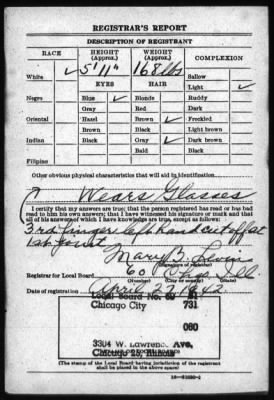 REGISTRAR'S REPORT
DESCRIPTION OF REGISTRANT
RACE HEIGHT (Approx.) WEIGHT (Approx.) COMPLEXION
5'11" 168 lbs
White ✓ EYES HAIR Sallow
Light ✓
Negro Blue ✓ Blonde Ruddy
Gray Red Dark
Oriental Hazel Brown Freckled
Brown Black Light brown
Indian Black Gray ✓ Dark brown
Bald Black
Filipino
Other obvious physical characteristics that will aid in identification
Wears Glasses
I certify that my answers are true; that the person registered has read or has had
read to him his own answers; that I have witnessed his signature or mark and that
all of his answers of which I have knowledge are true, except as follows:
3rd finger left hand cut off at
1st joint
Mary B. Levin
(Signature of registrar)
Registrar for Local Board 60 Chgo. Ill.
(Number) (City or county) (State)
Date of registration April 27 1942
Local Board No. 60
Chicago City 731
060
3304 W. Lawrence Ave.
Chicago 25, Illinois
(STAMP OF LOCAL BOARD)
(The stamp of the Local Board having jurisdiction of the registrant
shall be placed in the above space)